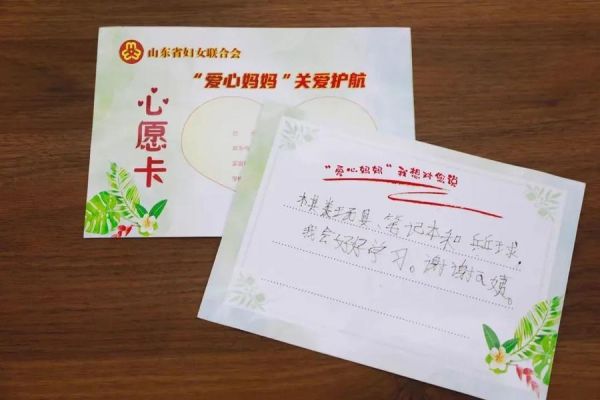 山东省妇女联合会
“爱心妈妈”关爱护航
心愿卡
“爱心妈妈”我想对您说
棋类玩具 笔记本和乒乓球,
我会好好学习。谢谢阿姨。